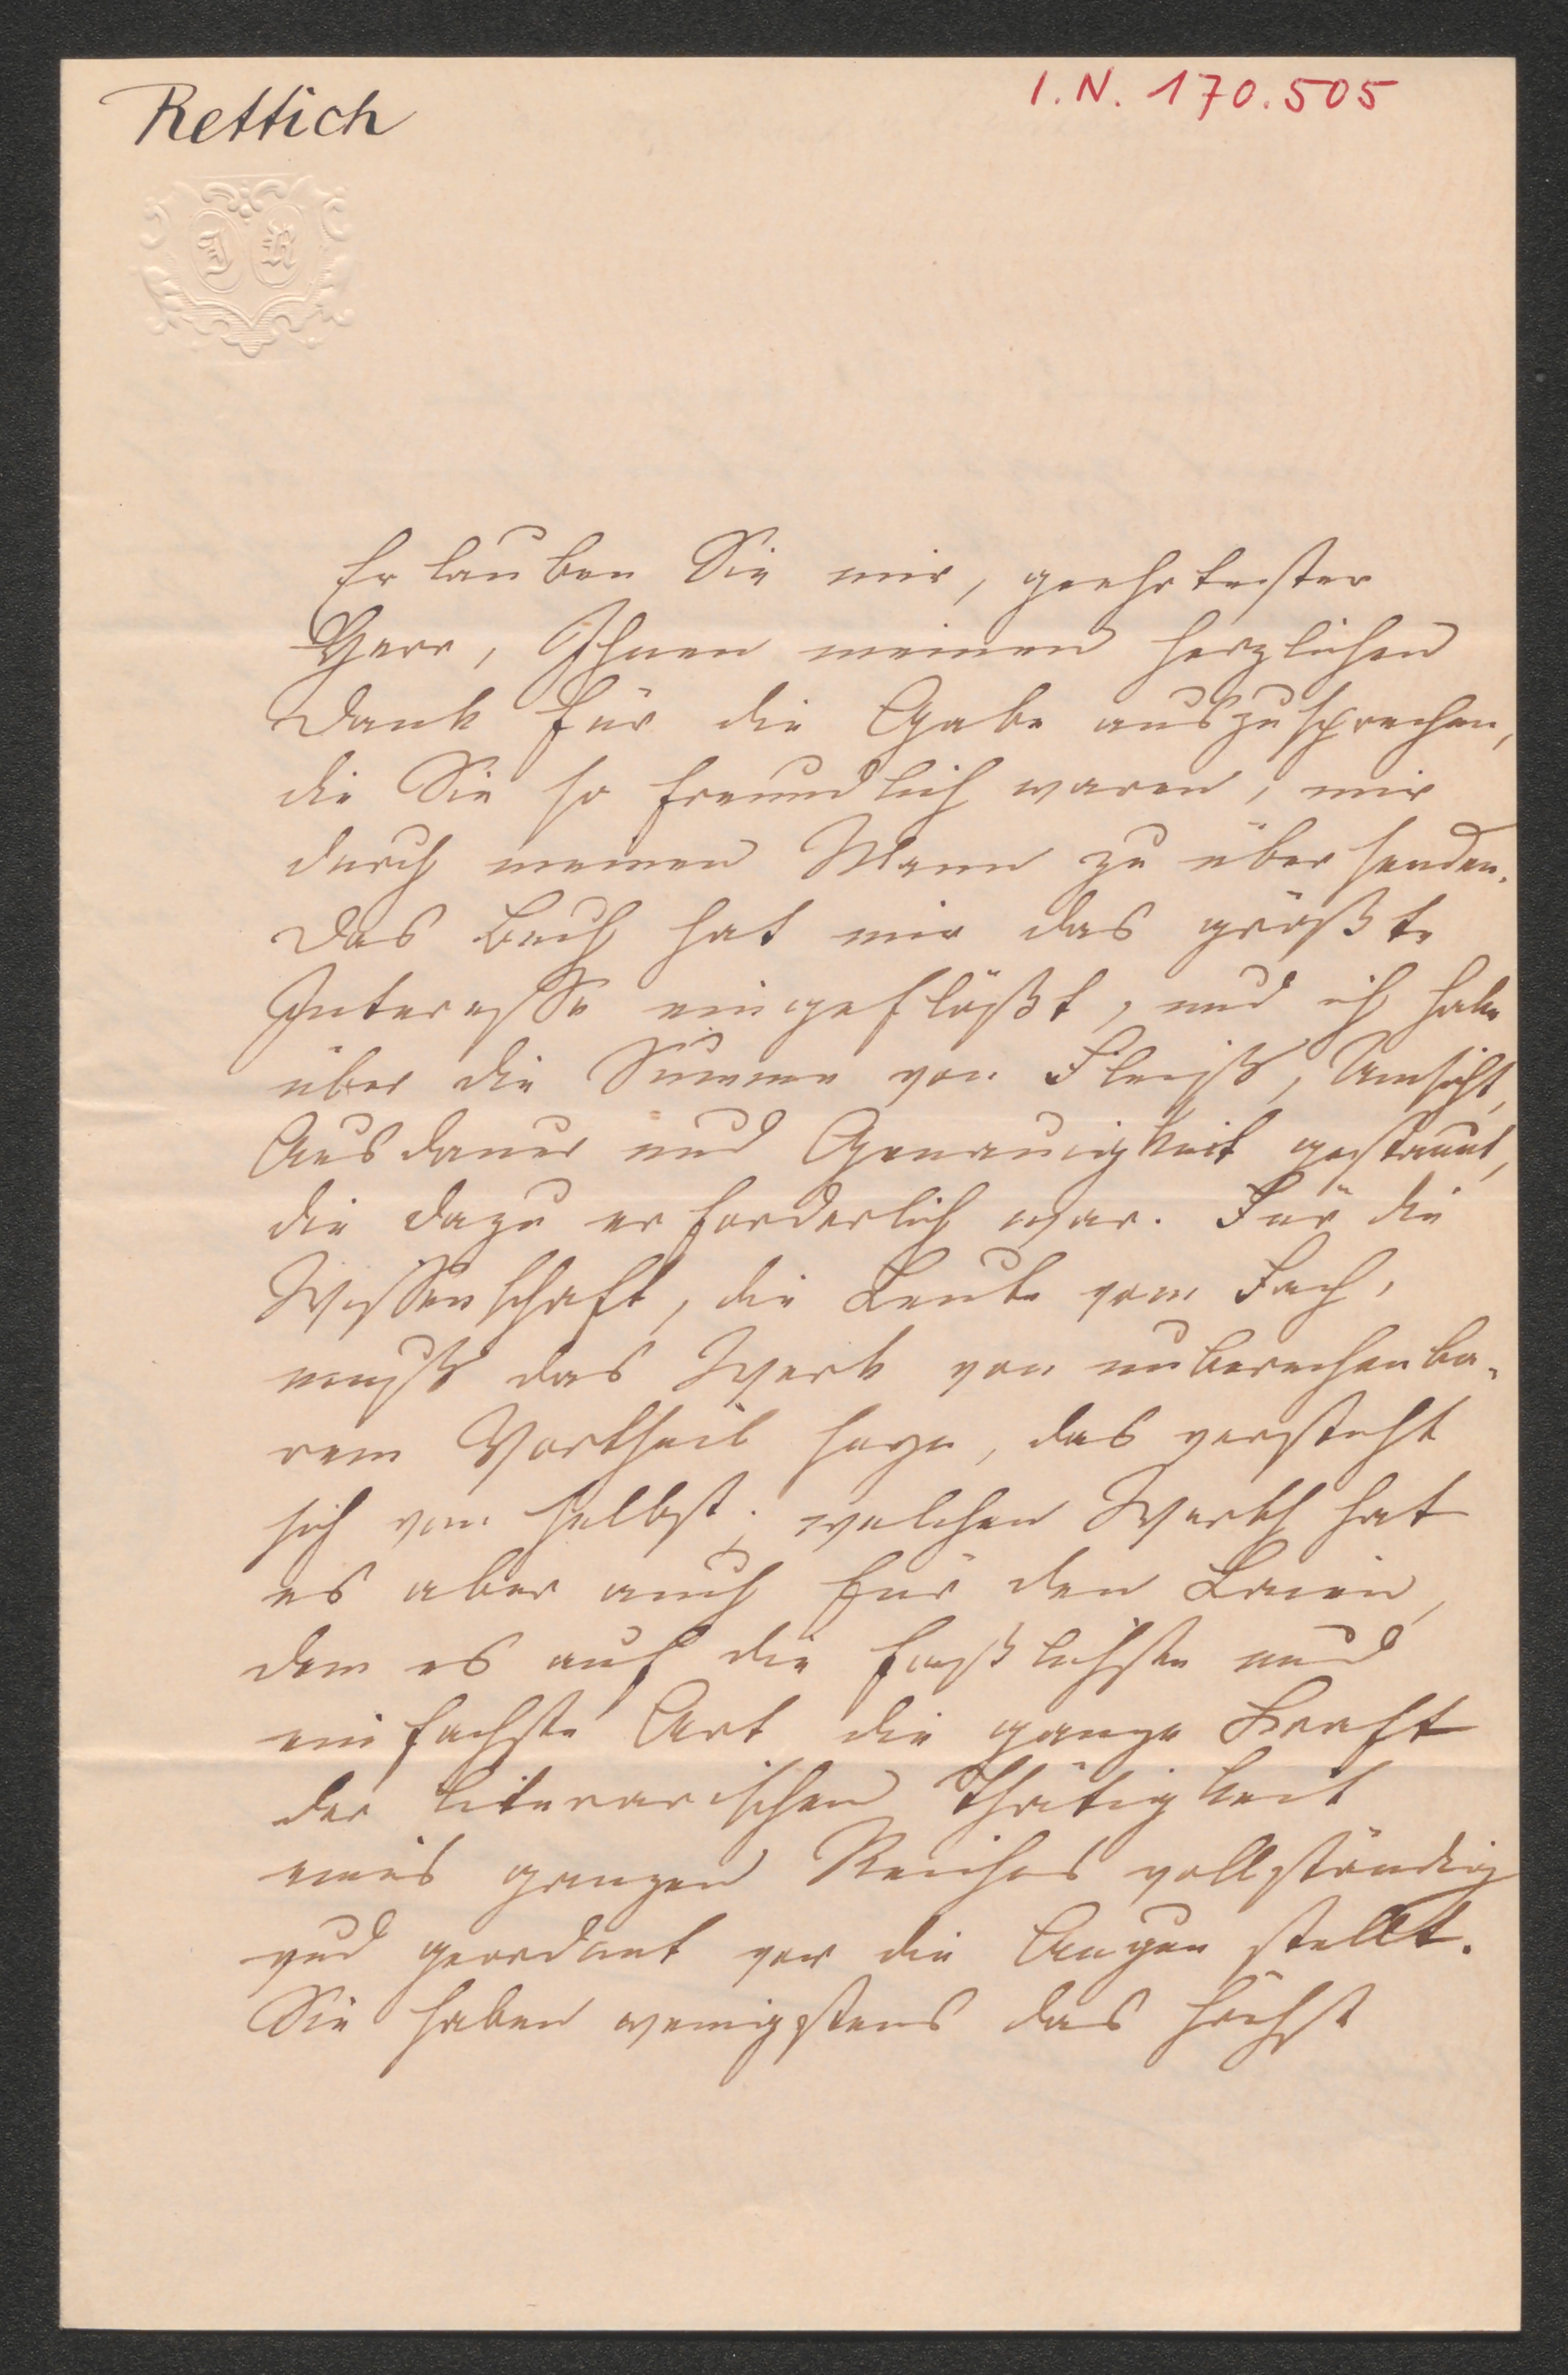 Rettich
I.N. 170.505
J R
Erlauben Sie mir, geehrtester
Herr, Ihnen meinen herzlichen
Dank für die Gabe auszusprechen,
die Sie so freundlich waren, mir
durch meinen Mann zu übersenden.
Das Buch hat mir das größte
Interesse eingeflößt, und ich habe
über die Summe von Fleiß, Umsicht,
Ausdauer und Genauigkeit gestaunt,
die dazu erforderlich war. Für die
Wissenschaft, die Leute vom Fach,
muß das Werk von unberechenba-
rem Vortheil seyn, das versteht
sich von selbst; welchen Werth hat
es aber auch für den Laien,
dem es auf die faßlichste und
einfachste Art die ganze Kraft
der literarischen Thätigkeit
eines ganzen Reiches vollständig
und geordnet vor die Augen stellt.
Sie haben wenigstens das höchst